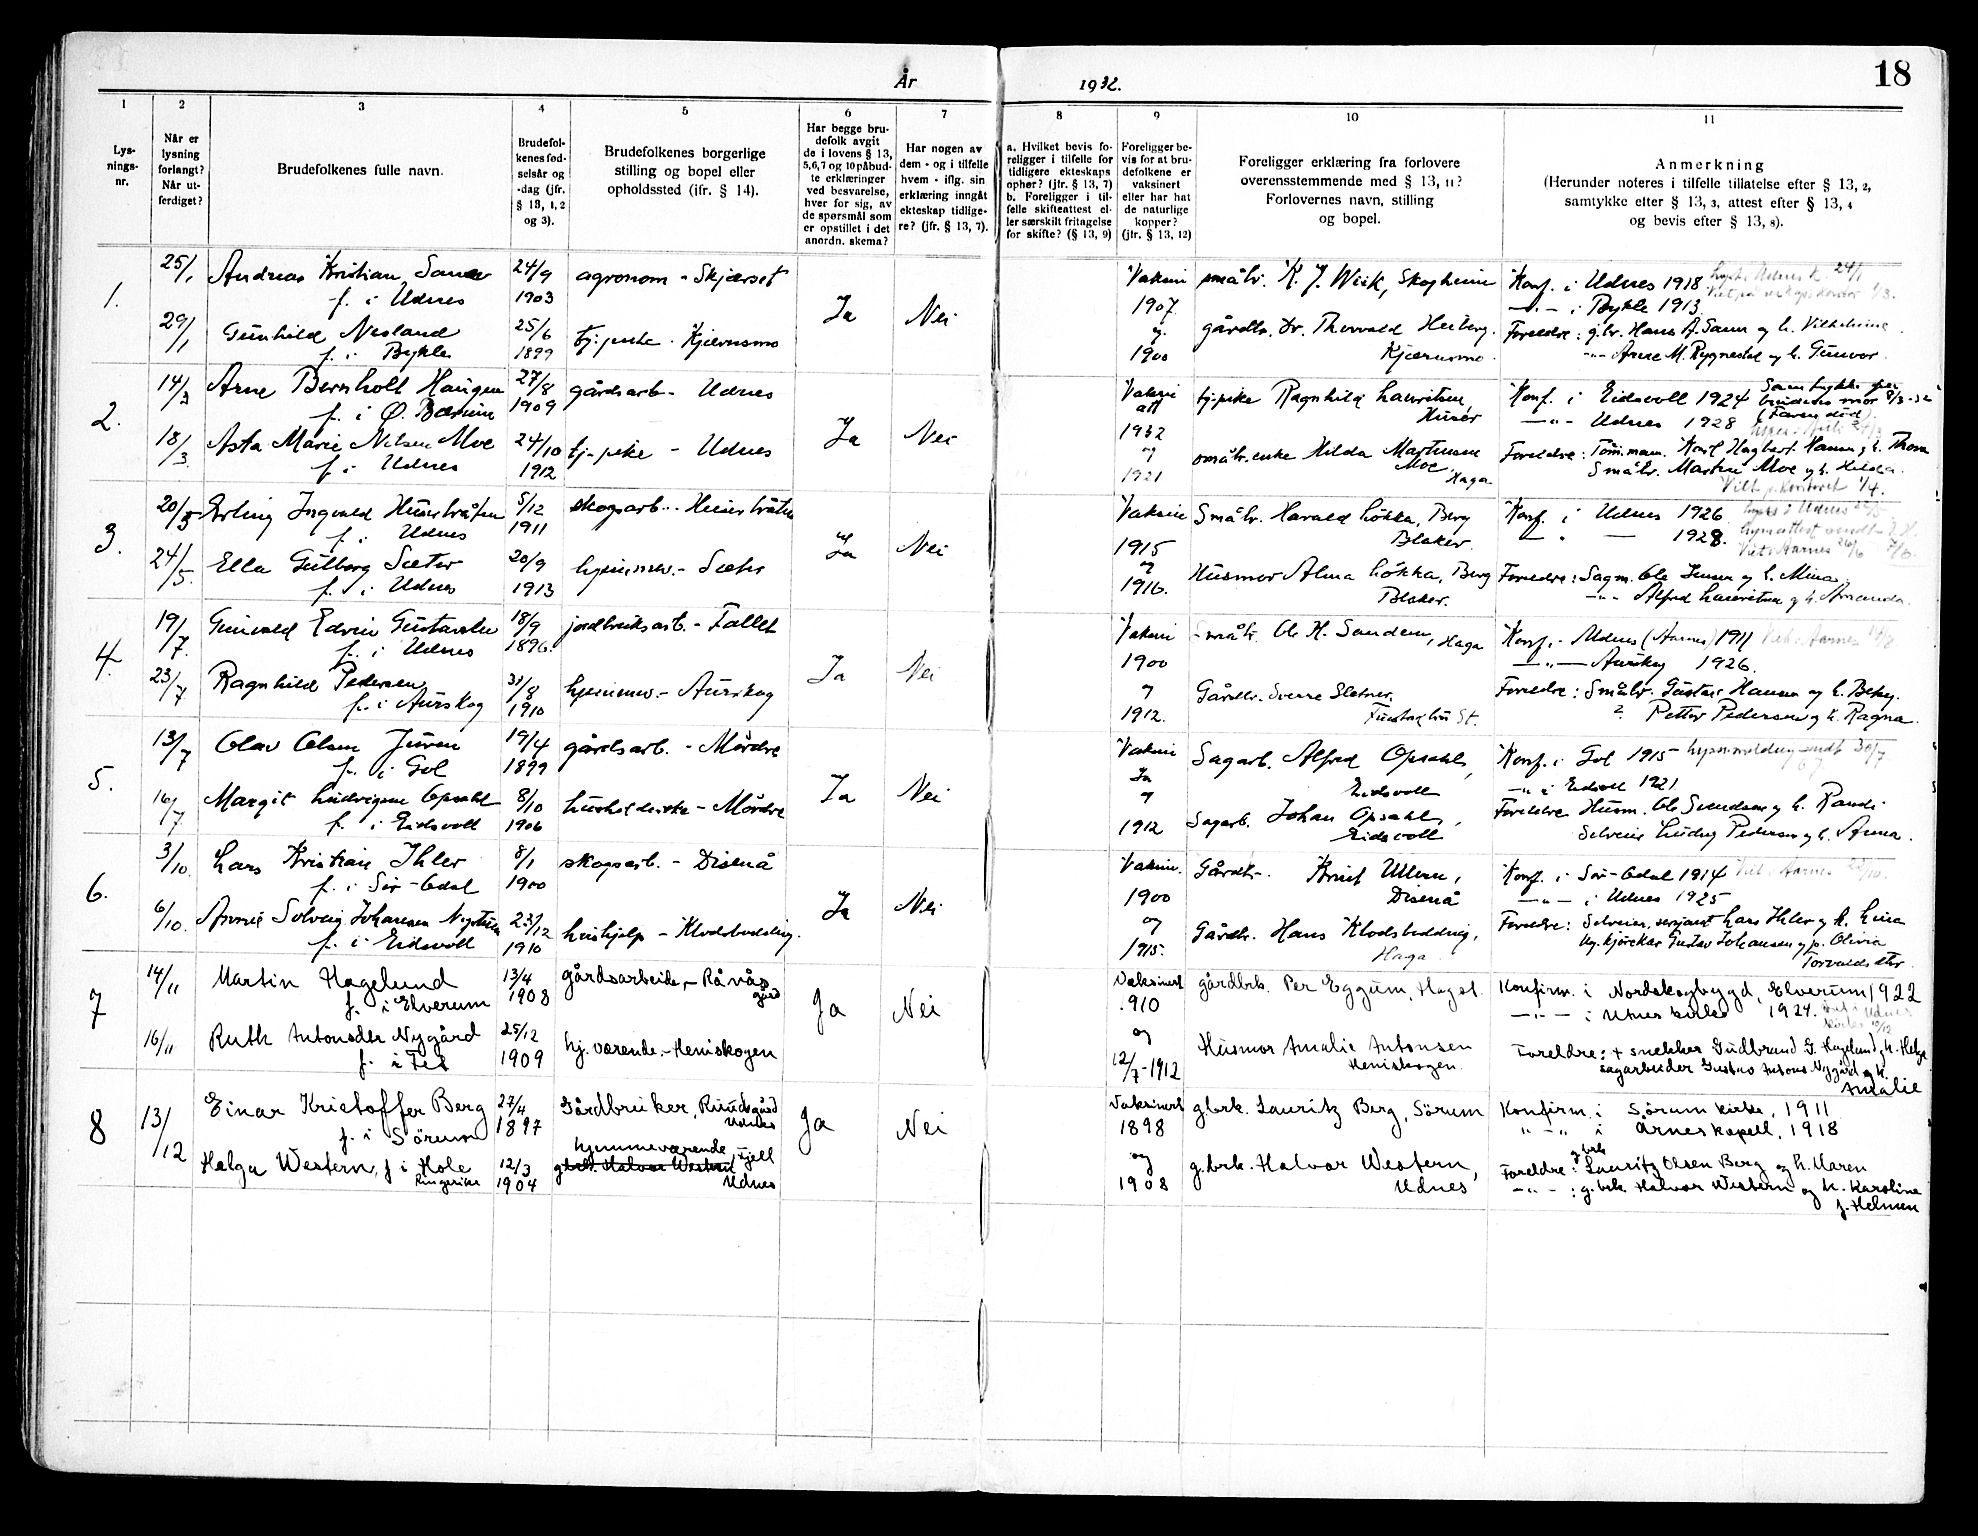 År 1932.
18
1
2
3
4
5
6
7
8
9
10
11
Lys-
nings-
nr.
Når er
lysning
forlangt?
Når ut-
ferdiget?
Brudefolkenes fulle navn.
Brudefol-
kenes fød-
selsår og
-dag (jfr.
§ 13, 1, 2
og 3).
Brudefolkenes borgerlige
stilling og bopel eller
opholdssted (jfr. § 14).
Har begge bru-
defolk avgit
de i lovens § 13,
5,6,7 og 10 påbud-
te erklæringer
ved besvarelse,
hver for sig, av
de spørsmål som
er opstillet i det
anordn. skema?
Har nogen av
dem - og i tilfelle
hvem - iflg. sin
erklæring inngåt
ekteskap tidlige-
re? (jfr. § 13, 7).
a. Hvilket bevis fo-
religger i tilfelle for
tidligere ekteskaps
ophør? (jfr. § 13, 7)
b. Foreligger i til-
felle skifteattest el-
ler særskilt fritagelse
for skifte? (§ 13, 9)
Foreligger be-
vis for at bru-
defolkene er
vaksinert
eller har hat
de naturlige
kopper?
(jfr. § 13, 12)
Foreligger erklæring fra forlovere
overensstemmende med § 13, 11?
Forlovernes navn, stilling
og bopel.
Anmerkning
(Herunder noteres i tilfelle tillatelse efter § 13, 2,
samtykke efter § 13, 3, attest efter § 13, 4
og bevis efter § 13, 8).
1.
25/1
Andreas Kristian
f. i Udnes
24/9
1903
agronom - Skjærset
29/1
Gunhild Nesland
f. i Bykle
25/6
1899
tj.pike - Kjærnsmo
Ja
Nei
Vaksin
1907.
og
1900
småbr. K. J. Wiik, Skogheim
gårdbr. Dr. Thorvald Heiberg.
Kjærnsmo.
Konf. i Udnes 1918
—"— i Bykle 1913.
Foreldre: g.br. Hans A. Sann og h. Vilhelmine
—"— Arne M. Rygnestad og h. Gunvor.
2.
14/3
Arne Bernholt Haugen
f. i Ø. Bærum
27/8
1909
gårdsarb. - Udnes
18/3
Asta Marie Nilsen Moe
f. i Udnes
24/10
1912
tj.pike - Udnes
Ja
Nei
Vaksin
att
1932
og
1921
tj.pike Ragnhild Lauritsen,
Huser
småbr.enke Hilda Martinsen
Moe
Haga
Konf. i Eidsvoll 1924
—"— Udnes 1928
(Faren død).
Foreldre: Tømm.mann. Karl Hagbart Hansen, h. Thora
Småbr. Martin Moe og h. Hilda.
Viet p. kontoret 1/4.
3.
20/5
Erling Ingvald Huserbråten
f. i Udnes
5/12
1911
skogsarb. - Huserbråten
24/5
Ella Gulborg Sæter
f. i Udnes
20/9
1913
hjemmev. - Sæter
Ja
Nei
Vaksin
1915
og
1916.
Småbr. Harald Løkka, Berg
Blaker.
Husmor Alma Løkka, Berg
Blaker.
Konf. i Udnes 1926
— " — 1928.
Foreldre: Sagm. Ole Jensen og h. Mina.
—"— Alfred Lauritsen og h. Amanda.
4.
19/7
Gunvald Edvin Gustavsen
f. i Udnes
18/9
1896.
jordbruksarb. - Fallet
23/7
Ragnhild Pedersen
f. i Aurskog
31/8
1910
hjemmev. - Aurskog
Ja
Nei
Vaksin
1900
og
1912.
Småbr. Ole H. Sanden, Haga
Gårdbr. Sverre Slotner,
Konf. - Udnes (Aarnes) 1911
—"— Aurskog 1926.
Foreldre: Småbr. Gustav Hansen og h. Betsy.
? Petter Pedersen og h. Ragna.
5.
13/7
Olav Olsen Juven
f. i Gol
19/4
1899
gårdsarb. - Mørdre
16/7
Margit Ludvigsen Opsahl
f. i Eidsvoll
8/10
1906
husholderske - Mørdre
Ja
Nei
Vaksin
Ja
og
1912
Sagarb. Alfred Opsahl,
Eidsvoll
Sagarb. Johan Opsahl,
Eidsvoll
Konf. i Gol 1915
—"— i Eidsvoll 1921
Foreldre Husm. Ole Svendsen og h. Randi
Selveier Ludvig Pedersen og h. Anna.
6.
3/10
Lars Kristian Ihler
f. i Sør-Odal
8/1
1900
skogsarb. - Disenå
6/10.
Annie Solveig Johansen Nystuen
f. i Eidsvoll
23/12
1910
hushjelp - Klodsbudding.
Ja
Nei
Vaksin.
1900
og
1915.
Gårdbr. Knut Ullern,
Disenå
Gårdbr. Hans Klodsbudding,
Haga.
Konf. i Sør-Odal 1914
—"— i Udnes 1925
Foreldre: Selveier, sersjant Lars Ihler og h. Lina
Gustav Johansen og p. Olivia
Torvaldsdtr.
7
14/11
Martin Hagelund
f. i Elverum
13/4
1908
gårdsarbeider, - Rånås
gård
16/11
Ruth Antonsdtr Nygård
f. i Fet
25/12
1909
hj.værende. - Heniskogen
Ja
Nei
Vaksinert
1910
og
12/7-1912
gårdbrk. Per Eggum, Hagel.
Husmor Amalie Antonsen
Heniskogen.
Konfirm. i Nordskogbygd, Elverum 1922
—"— i Utnes kirke 1924.
Foreldre: + snekker Gudbrand G. Hagelund, h. Helga
sagarbeider Gustav Antons. Nygård og h.
Amalie
8
13/12
Einar Kristoffer Berg
f. i Sørum
27/4
1897
Gårdbruker, Rundsgård
Udnes
Helga Western, f i Hole
Ringerike
12/3
1904
hjemmeværende
g.brk. Halvor Western, Fjell
Udnes
Ja
Nei
Vaksinert
1898
og
1908
g.brk. Lauritz Berg, Sörum
g.brk. Halvor Western,
Udnes
Konfirm. i Sörum kirke, 1911
" - " - i Årnes kapell, 1918
Foreldre: g.brk Lauritz Olsen Berg og h. Maren
—"— : g.brk Halvor Western og h. Karoline
f. Helmen